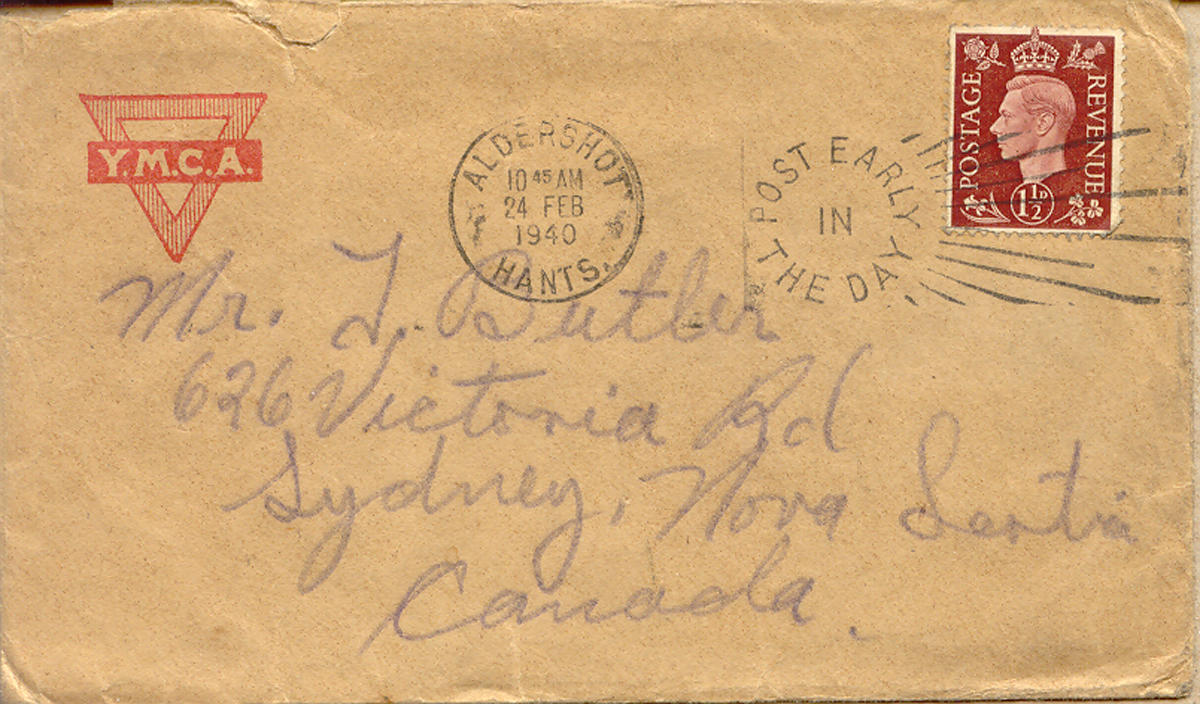 Y.M.C.A.
ALDERSHOT
10 45 AM
24 FEB
1940
HANTS.
POST EARLY
IN
THE DAY
POSTAGE
REVENUE
1 1/2 D
Mr. T. Butler
626 Victoria Rd
Sydney, Nova Scotia
Canada.